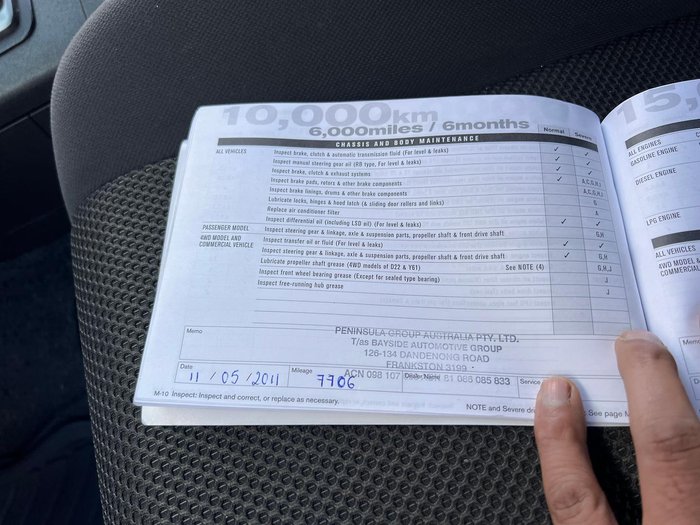 10,000km
6,000miles / 6months
Normal Severe
CHASSIS AND BODY MAINTENANCE
ALL VEHICLES Inspect brake, clutch & automatic transmission fluid (For level & leaks) ✓ ✓
Inspect manual steering gear oil (RB type, For level & leaks) ✓ ✓
Inspect brake, clutch & exhaust systems ✓ ✓
Inspect brake pads, rotors & other brake components ✓ A,C,G,H,I
Inspect brake linings, drums & other brake components A,C,G,H
Lubricate locks, hinges & hood latch (& sliding door rollers and links) G
Replace air conditioner filter A
Inspect differential oil (including LSD oil) (For level & leaks) ✓ ✓
PASSENGER MODEL Inspect steering gear & linkage, axle & suspension parts, propeller shaft & front drive shaft G,H
4WD MODEL AND Inspect transfer oil or fluid (For level & leaks) ✓ ✓
COMMERCIAL VEHICLE Inspect steering gear & linkage, axle & suspension parts, propeller shaft & front drive shaft ✓ G,H
Lubricate propeller shaft grease (4WD models of D22 & Y61) See NOTE (4) G,H,J
Inspect front wheel bearing grease (Except for sealed type bearing) J
Inspect free-running hub grease J
Memo
PENINSULA GROUP AUSTRALIA PTY. LTD.
T/as BAYSIDE AUTOMOTIVE GROUP
126-134 DANDENONG ROAD
FRANKSTON 3199
ACN 098 107 81 086 085 833
Date 11 / 05 / 2011 Mileage 7706 Dealer Name Service
M-10 Inspect: Inspect and correct, or replace as necessary. NOTE and Severe See page M
15,0
ALL ENGINES
GASOLINE ENGINE
DIESEL ENGINE
LPG ENGINE
ALL VEHICLES
4WD MODEL &
COMMERCIAL
Memo
Date